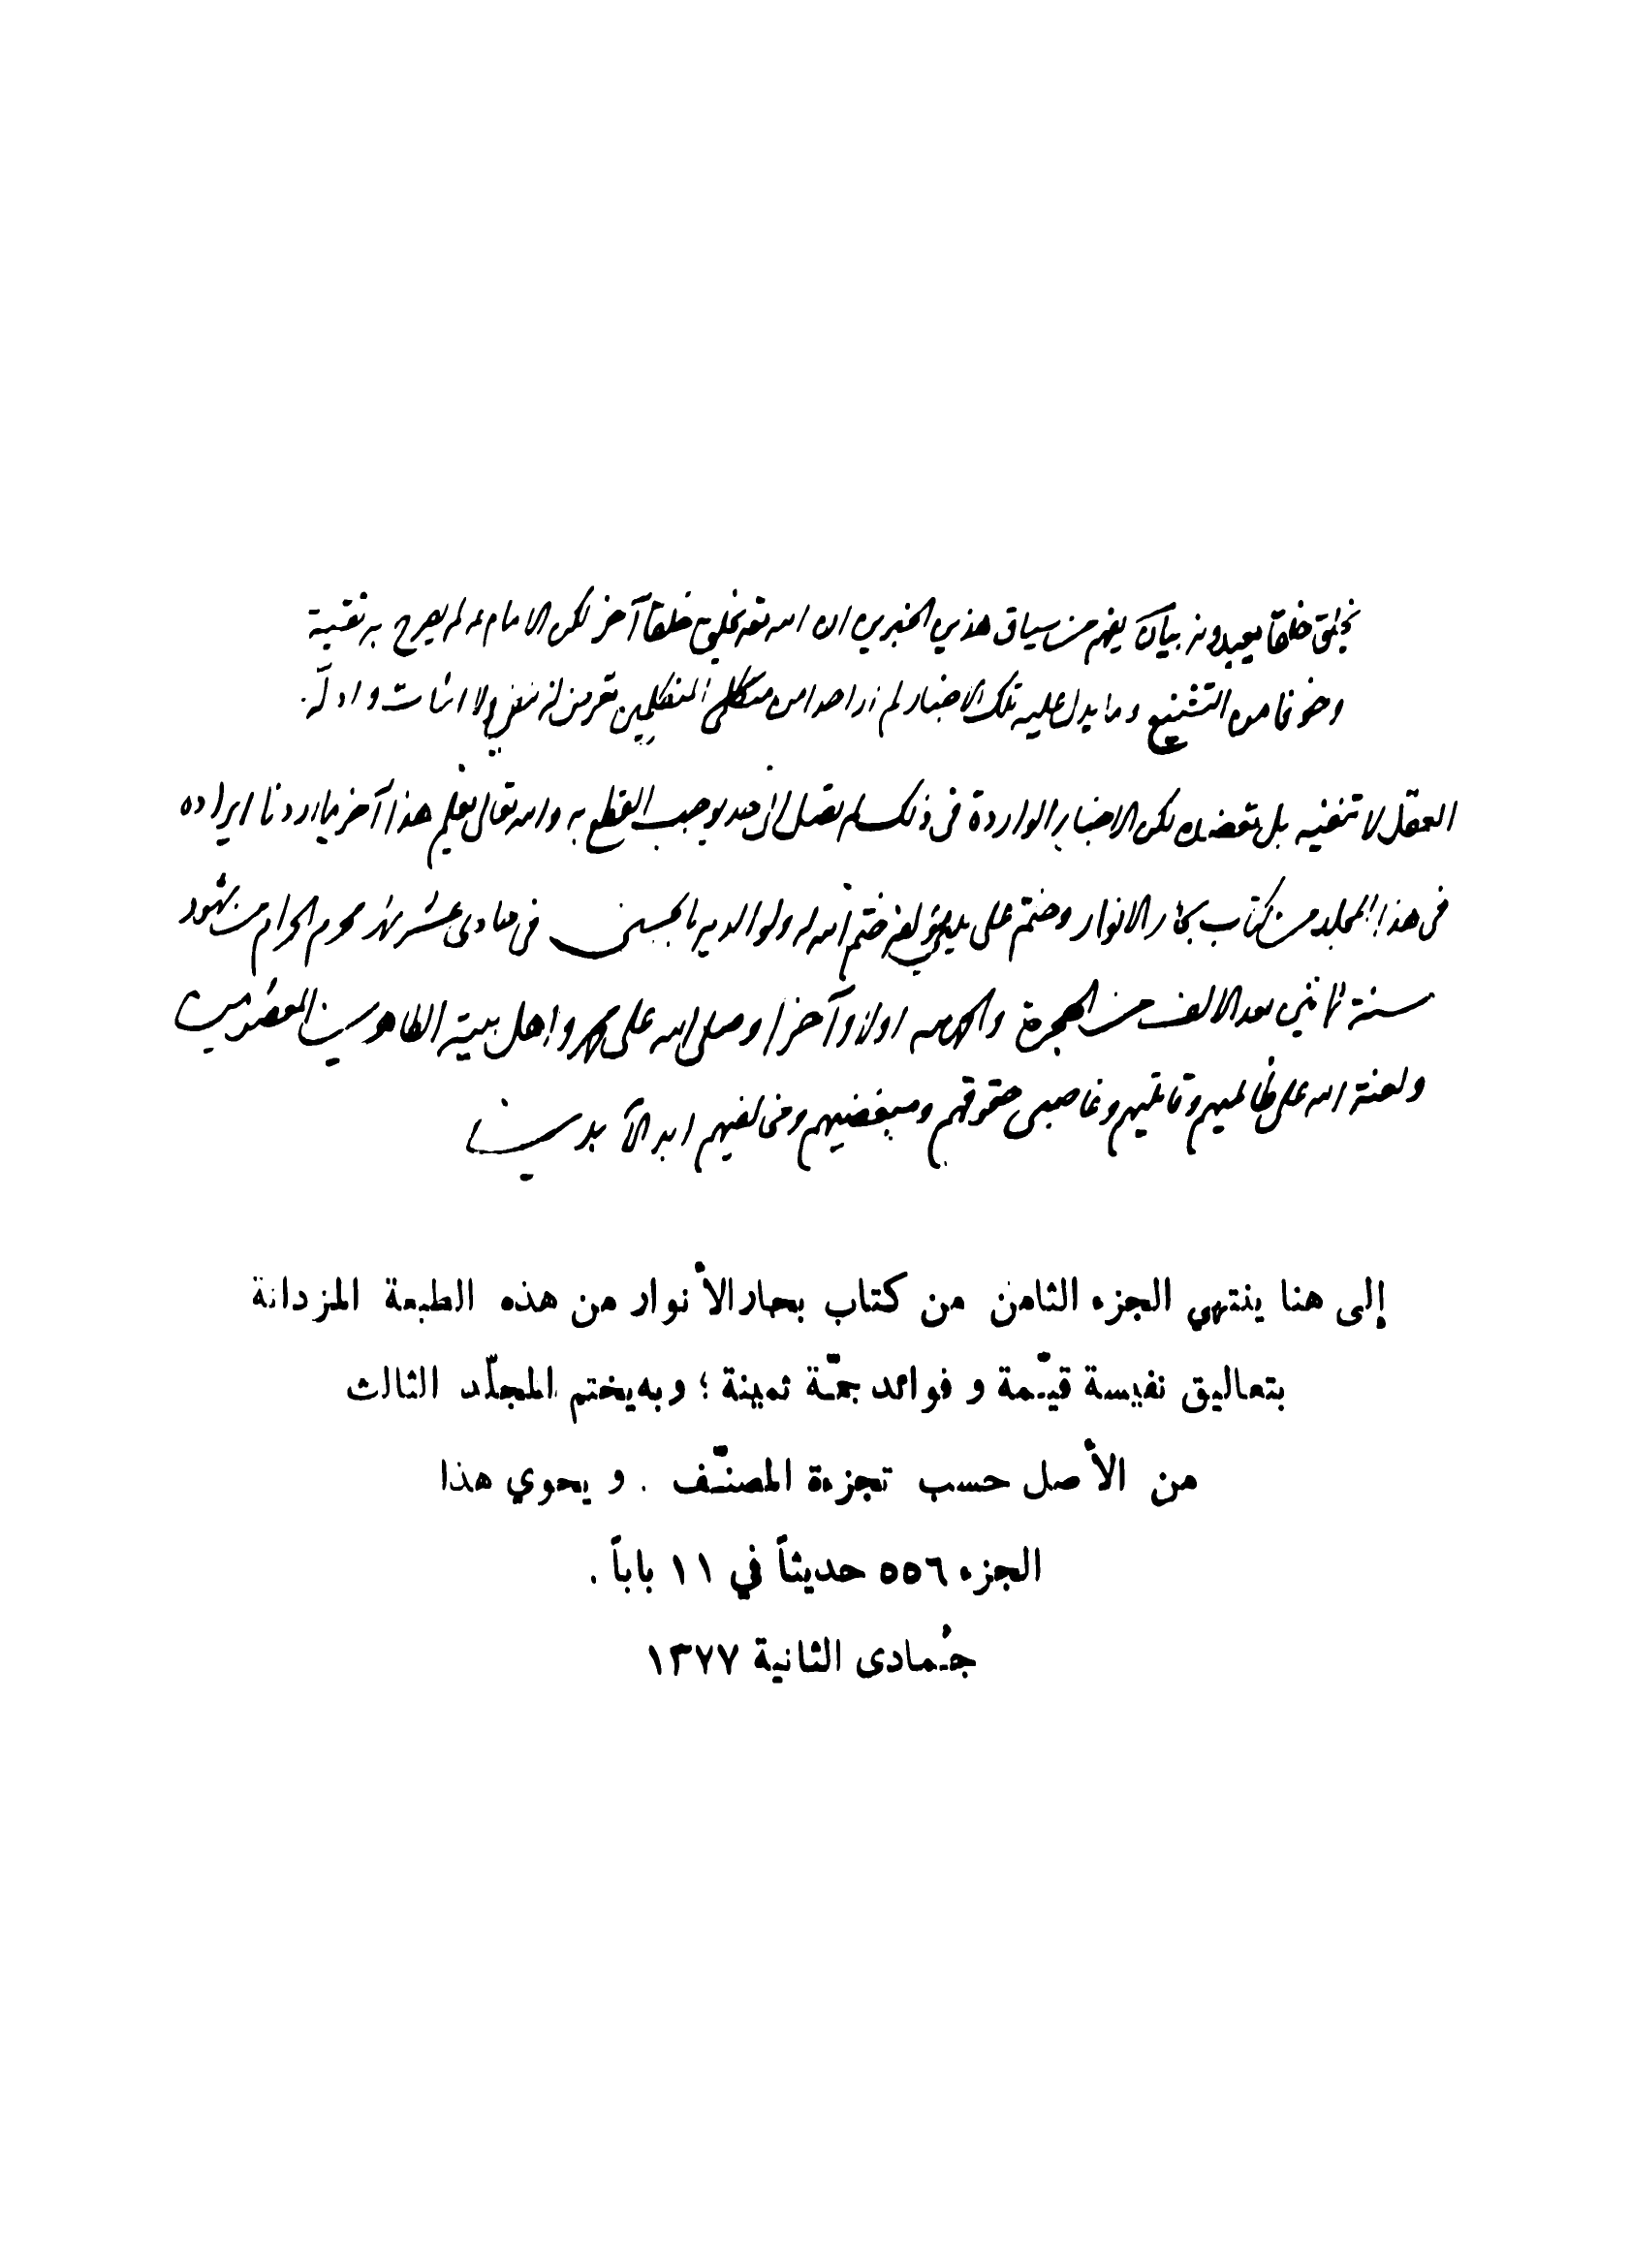 يخلق خلقا يعبدونه بيان يفهم من سياق هذين الخبرين ان الله تعه يخلق خلقاً آخر لكن الامام ع لم يصرح به تقية
وخوفا من التشنيع وما يدل عليه تلك الاخبار لم ار احدا من متكلمى المتكلمين تعرض له نفى ولا اثبات و ادلّة
العقل لا تنفيه بل تعضده لكن الاخبار الواردة فى ذلك لم تصل الى حد يوجب القطع به والله تعالى يعلم هذا آخر ما اردنا ايراده
فى هذا المجلد من كتاب بحار الانوار وختم على يد مؤلفه ختم الله له ولوالديه بالحسنى فى حادى عشر شهر محرم الحرام من شهور
سنة ثمانين بعد الالف من الهجرة والحمد لله اولا وآخرا وصلى الله على محمد واهل بيته الطاهرين المعصومين
ولعنة الله على ظالميهم وقاتليهم وغاصبى حقوقهم ومبغضيهم ومخالفيهم ابد الآبدين
إلى هنا ينتهي الجزء الثامن من كتاب بحار الأنوار من هذه الطبعة المزدانة
بتعاليق نفيسة قيّمة و فوائد جمّة ثمينة ؛ وبه يختم المجلّد الثالث
من الأصل حسب تجزءة المصنّف . و يحوي هذا
الجزء ٥٥٦ حديثاً في ١١ باباً .
جُمادى الثانية ١٣٧٧